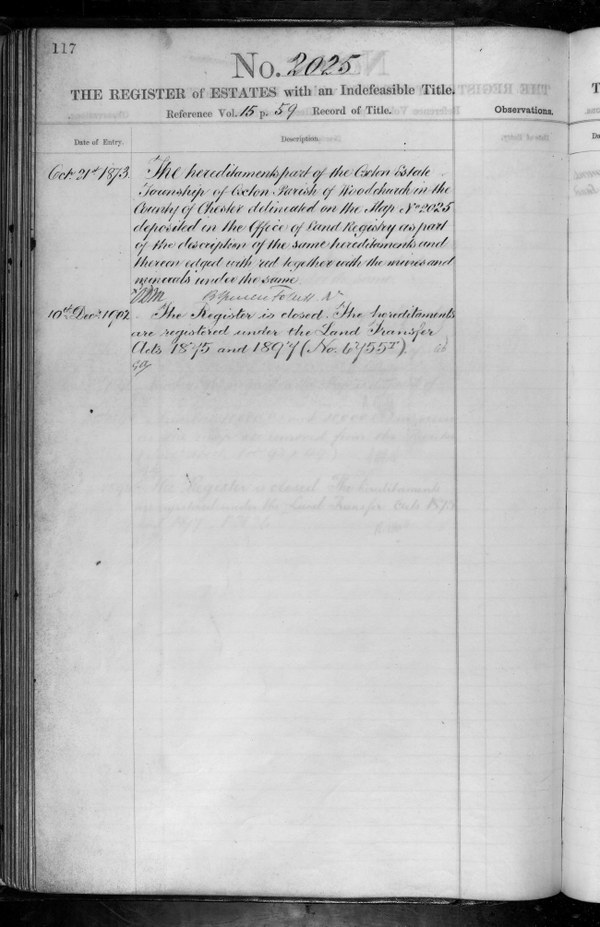 117
No. 2025
THE REGISTER of ESTATES with an Indefeasible Title.
Reference Vol. 15 p. 59 Record of Title.
Observations.
Date of Entry.
Description.
Oct. 21st 1873. The hereditaments part of the Oxton Estate
Township of Oxton Parish of Woodchurch in the
County of Chester delineated on the Map No 2025
deposited in the Office of Land Registry as part
of the description of the same hereditaments and
thereon edged with red together with the mines and
minerals under the same
10th Decr 1902. The Register is closed. The hereditaments
are registered under the Land Transfer
Acts 1875 and 1897 (No. 6755)